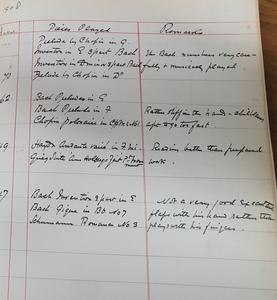 Pieces Played
Remarks
Prelude by Chopin in G.
Invention in E 3 part Bach
The Bach numbers very care-
Invention in D minor 3 part Bach
fully & musically played.
Prelude by Chopin in D♭
62
Bach Prelude in G
Bach Prelude in F
Rather stiff in the hands - a little
Chopin polonaise in C# Min
apt to go too fast.
Haydn Andante varié in F Mi
Reading better than prepared
Grieg Suite
work.
Bach Invention 3 part in E
Not a very good executant
Bach Gigue in B♭ No 7
plays with his hand rather than
Schumann Romance No 3
plays with his fingers.